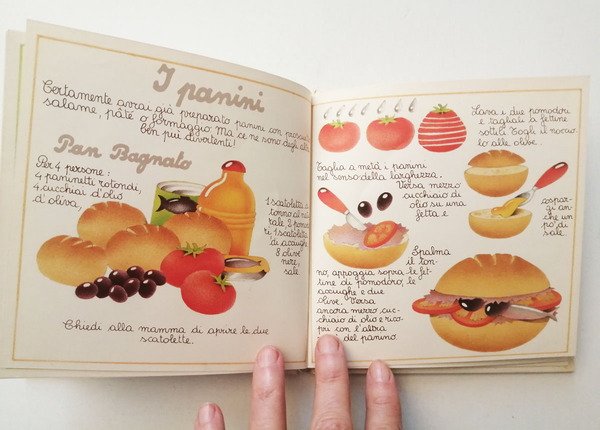 I panini
Certamente avrai già preparato panini con prosciutto,
salame, pâté o formaggio. Ma ce ne sono degli altri
ben più divertenti!
Pan Bagnato
Per 4 persone:
4 paninetti rotondi,
4 cucchiai d'olio
d'oliva,
1 scatoletta di
tonno al natu
rale, 2 pomodo
ri 1 scatoletta
di acciughe
8 olive
nere,
sale
Chiedi alla mamma di aprire le due
scatolette.
Lava i due pomodori
e tagliali a fettine
sottili. Togli il noccio
lo alle olive.
Taglia a metà i panini
nel senso della larghezza.
Versa mezzo
cucchiaio di
olio su una
fetta e
cospar
gi an
che un
po' di
sale.
Spalma
il ton-
no, appoggia sopra le fet-
tine di pomodoro, le
acciughe e due
olive. Versa
ancora mezzo cuc-
chiaio di olio e rico
pri con l'altra
del panino.